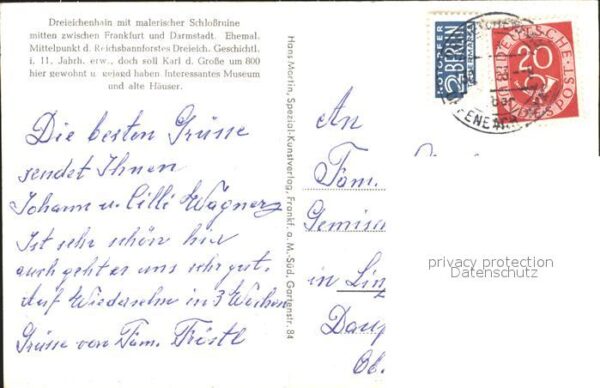 Dreieichenhain mit malerischer Schloßruine
mitten zwischen Frankfurt und Darmstadt. Ehemal.
Mittelpunkt d. Reichsbannforstes Dreieich. Geschichtl.
i. 11, Jahrh. erw., doch soll Karl d. Große um 800
hier gewohnt u. gejagd haben Interessantes Museum
und alte Häuser.
Die besten Grüsse
sendet Ihnen
Johann u. Cilli Wagner
Ist sehr schön hier
auch geht es uns sehr gut.
Auf Wiedersehn in 3 Wochen
Grüsse von Fam. Fröstl
Hans Martin, Spezial-Kunstverlag, Frankf. a. M.-Süd, Gartenstr. 84
NOTOPFER
2 BERLIN
STEUERMARKE
DEUTSCHE
20
BUNDESPOST
An
Fam.
Gemisc
in Lin
Ob.
privacy protection
Datenschutz